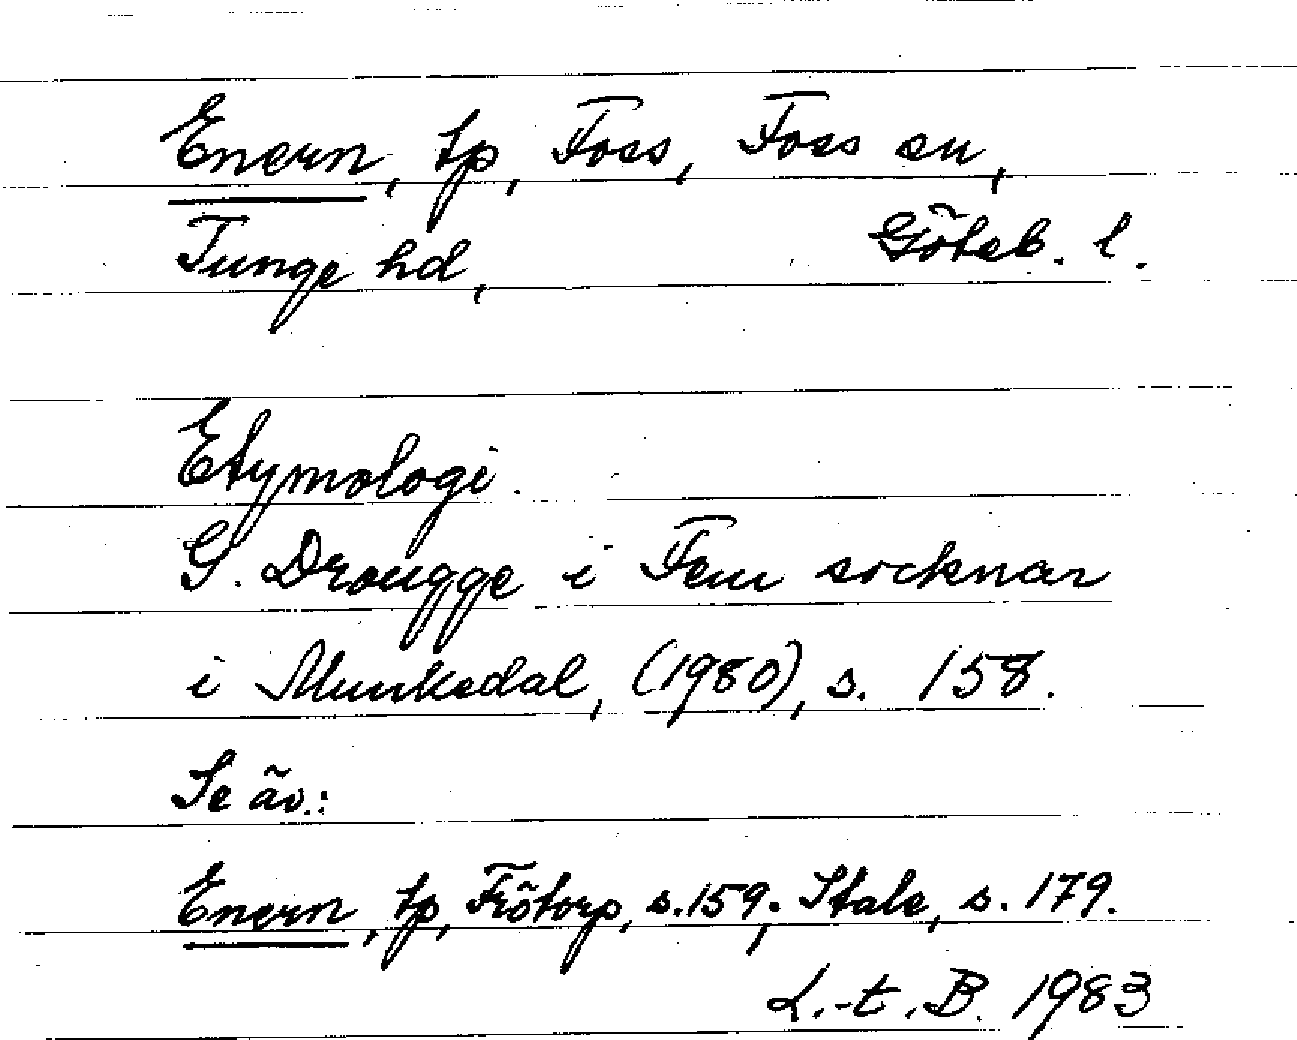 Enern, tp, Foss, Foss sn,
Tunge hd, Göteb. l.
Etymologi.
G. Drougge i Fem socknar
i Munkedal, (1980), s. 158.
Se äv.:
Enern, tp, Frötorp, s. 159; Stale, s. 179.
L.-t. B. 1983